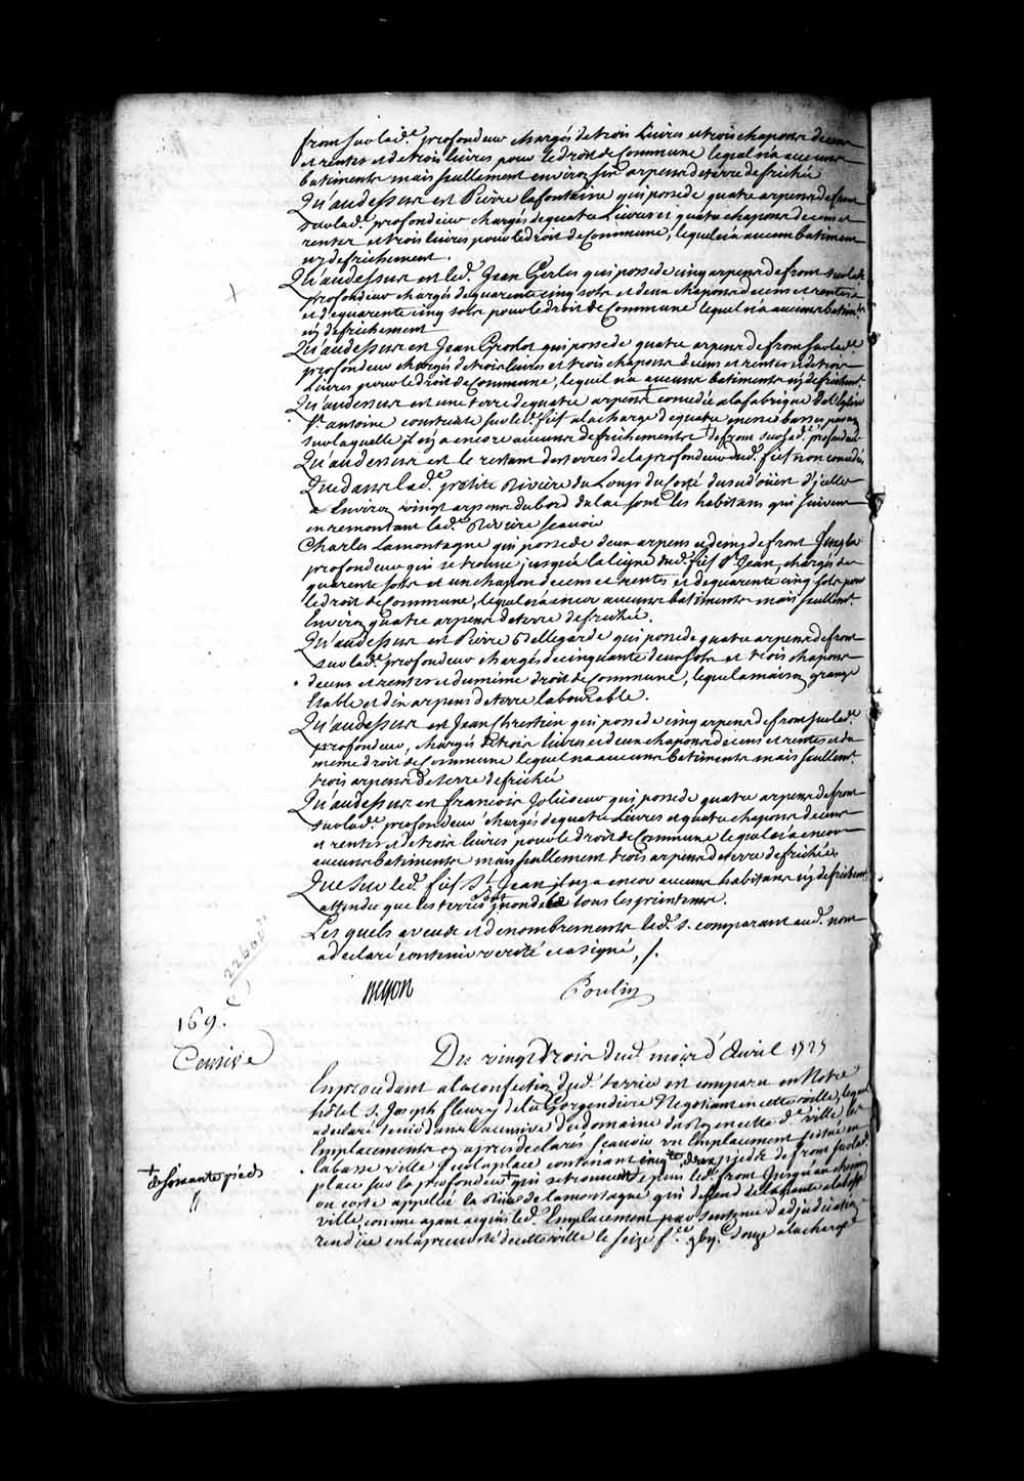 front sur lad.e profondeur chargés de trois Livres et trois chapons de cens
et rentes et de trois livres pour le droit de Commune lequel n'a aucuns
batiments mais seullement environ six arpens de terre defrichée
Qu'audessus est Pierre lafontaine qui possede quatre arpens de front
sur lad.e profondeur chargés de quatre Livres et quatre chapons de cens et
rentes et trois livres pour le droit de Commune, lequel n'a aucun batiment
ny defrichement.
Qu'audessus est led. Jean Gerles qui possede cinq arpens de front sur lade
profondeur chargés de quarente cinq sols et deux chapons de cens et rentes
et de quarente cinq sols pour le droit de Commune lequel n'a aucuns batim.ts
ny defrichement
Qu'audessus est Jean qui possede quatre arpens de front sur lad.e
profondeur chargés de trois livres et trois chapons de cens et rentes et de trois
Livres pour le droit de Commune, lequel n'a aucuns batiments ny defrichem.t
Qu'audessus est une terre de quatre arpens + concedée a la fabrique de l'Eglise
S.t antoine construite sur led. fief a la charge de quatre messes basses par an
sur laquelle il n'y a encore aucuns defrichements + de front sur lad.e profondeur
Qu'audessus est le restant des terres de la profondeur dud. fief non concedées
Que dans lad.e petite Riviere du Loup du costé du sud'oüest d'icelle
a Environ vingt arpens du bord du lac sont les habitans qui suivent
en remontant lad.e Riviere scavoir
Charles Lamontagne qui possede deux arpens et demy de front sur la
profondeur qui se trouve jusqu'a la ligne dud. fief S.t Jean, chargés de
quarente sols et un chapon de cens et rentes et de quarente cinq sols pour
le droit de Commune, lequel n'a encor aucuns batiments mais seullem.t
Environ quatre arpens de terre defrichée.
Qu'audessus est Pierre Bellegarde qui possede quatre arpens de front
sur lad.e profondeur chargés de cinquante deux sols et trois chapons
de cens et rentes et du même droit de Commune, lequel a maison, grange
Etable et dix arpens de terre labourable.
Qu'audessus est Jean Chrestien qui possede cinq arpens de front sur lad.e
profondeur, chargés de trois livres et deux chapons de cens et rentes et du
même droit de Commune lequel n'a aucuns batiments mais seullem.t
trois arpens de terre defrichée
Qu'audessus est francois Jolicoeur qui possede quatre arpens de front
sur lad.e profondeur chargés de quatre Livres et quatre chapons de cens
et rentes et de trois livres pour le droit de Commune lequel n'a encor
aucuns batiments mais seullement trois arpens de terre defrichée
Que sur led. fief S.t Jean il n'y a encor aucuns habitans ny defrichem.t
attendu que les terres sont inondées tous les printems.
Les quels aveux et denombrements led. s. comparant aud. nom
a declaré contenir verité et a signé, /.
Poulin
169.
Censive
Du vingt trois dud. mois d'Avril 1725
En procedant a la confection dud. terrier est comparu en Notre
hôtel S. Joseph fleury de la Gorgendiere Negotiant en cette ville, lequel
a declaré tenir dans la censive du domaine du Roy en cette d.e ville les
Emplacements cy apres declarés scavoir un Emplacement situé en
la basse ville sur la place contenant deux pieds de front sur lad.
place sur la profondeur + qui se trouve depuis led. front jusqu'au chemin
ou coste appellée la Ruë de la montagne qui descend de la haute a la basse
ville, comme ayant acquis led. Emplacement par Sentence d'adjudication
rendüe en la prevosté de cette ville le seize f. douze a la charge
+ de soixante pieds